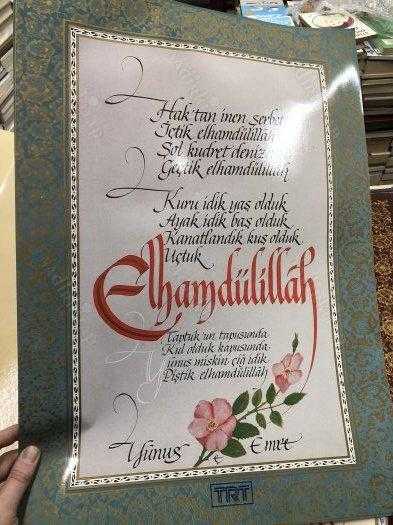 Hak'tan inen şerbeti
İçtik elhamdülillâh
Şol kudret deniz
Geçtik elhamdülillâh
Kuru idik yaş olduk
Ayak idik baş olduk
Kanatlandık kuş olduk
Uçtuk
Elhamdülillâh
Taptuk'un tapusunda
Kul olduk kapusunda
Yunus miskin çiğ idik
Piştik elhamdülillâh
Yunus Emre
TRT